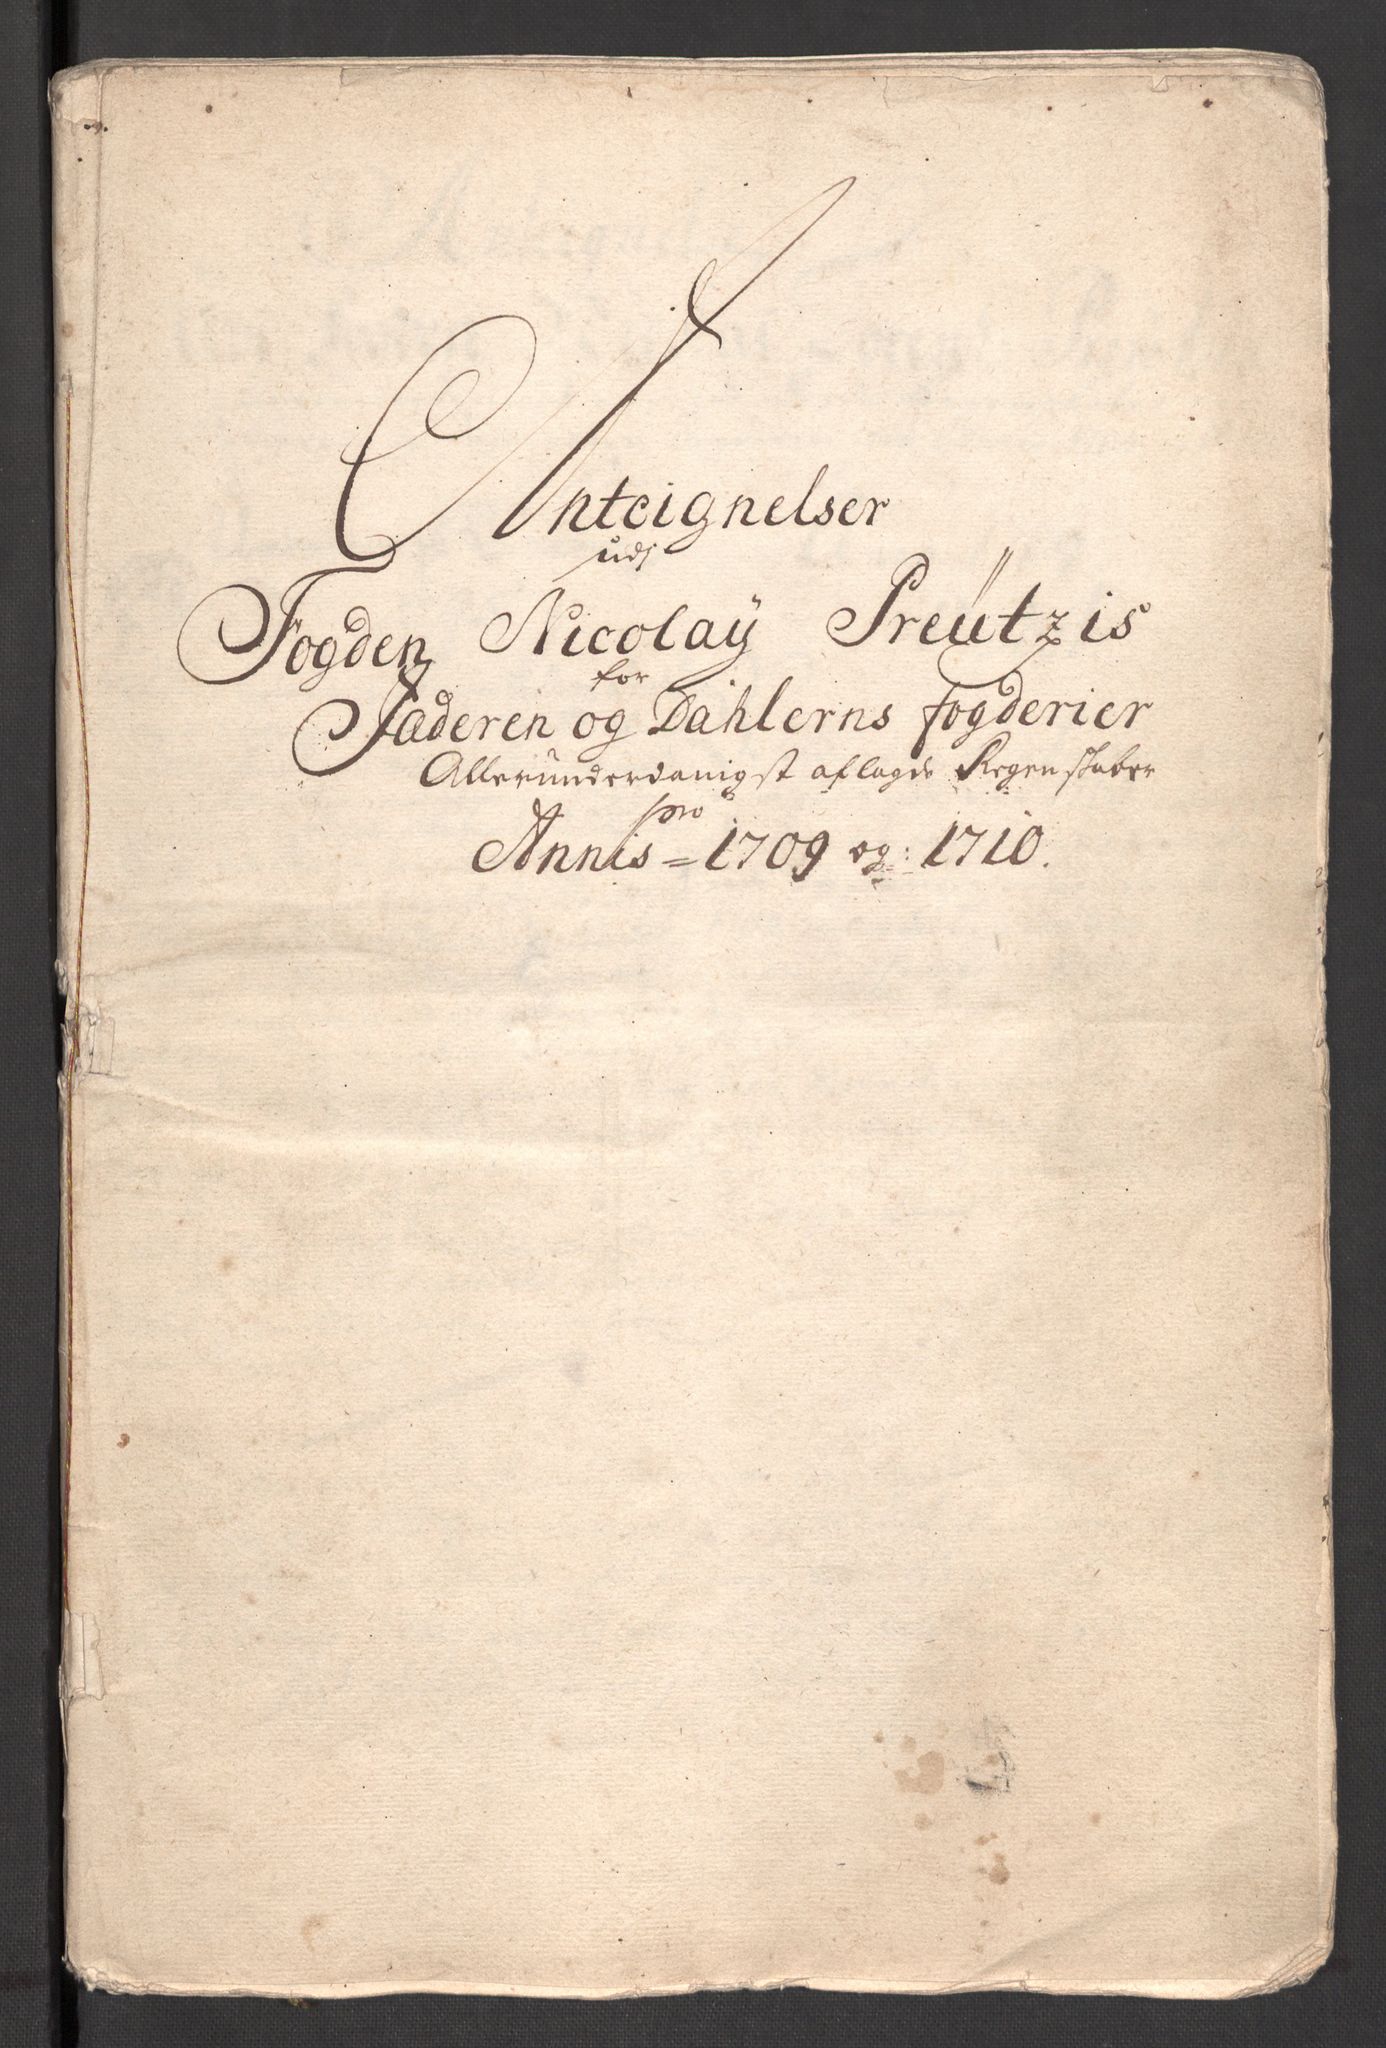 Anteignelser
udj
Fogden Nicolaÿ Preützis
for
Jæderen og Dahlerns fogderier
Alleründerdanigst aflagde Regenskaber
pro
Annis = 1709 og: 1710.